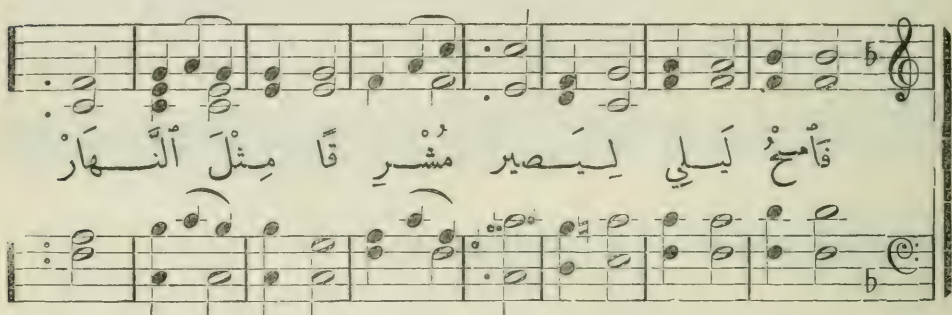 فَٱمْحُ لَيْلِي لِيَصِير مُشْرِ قًا مِثْلَ ٱلنَّهَارْ